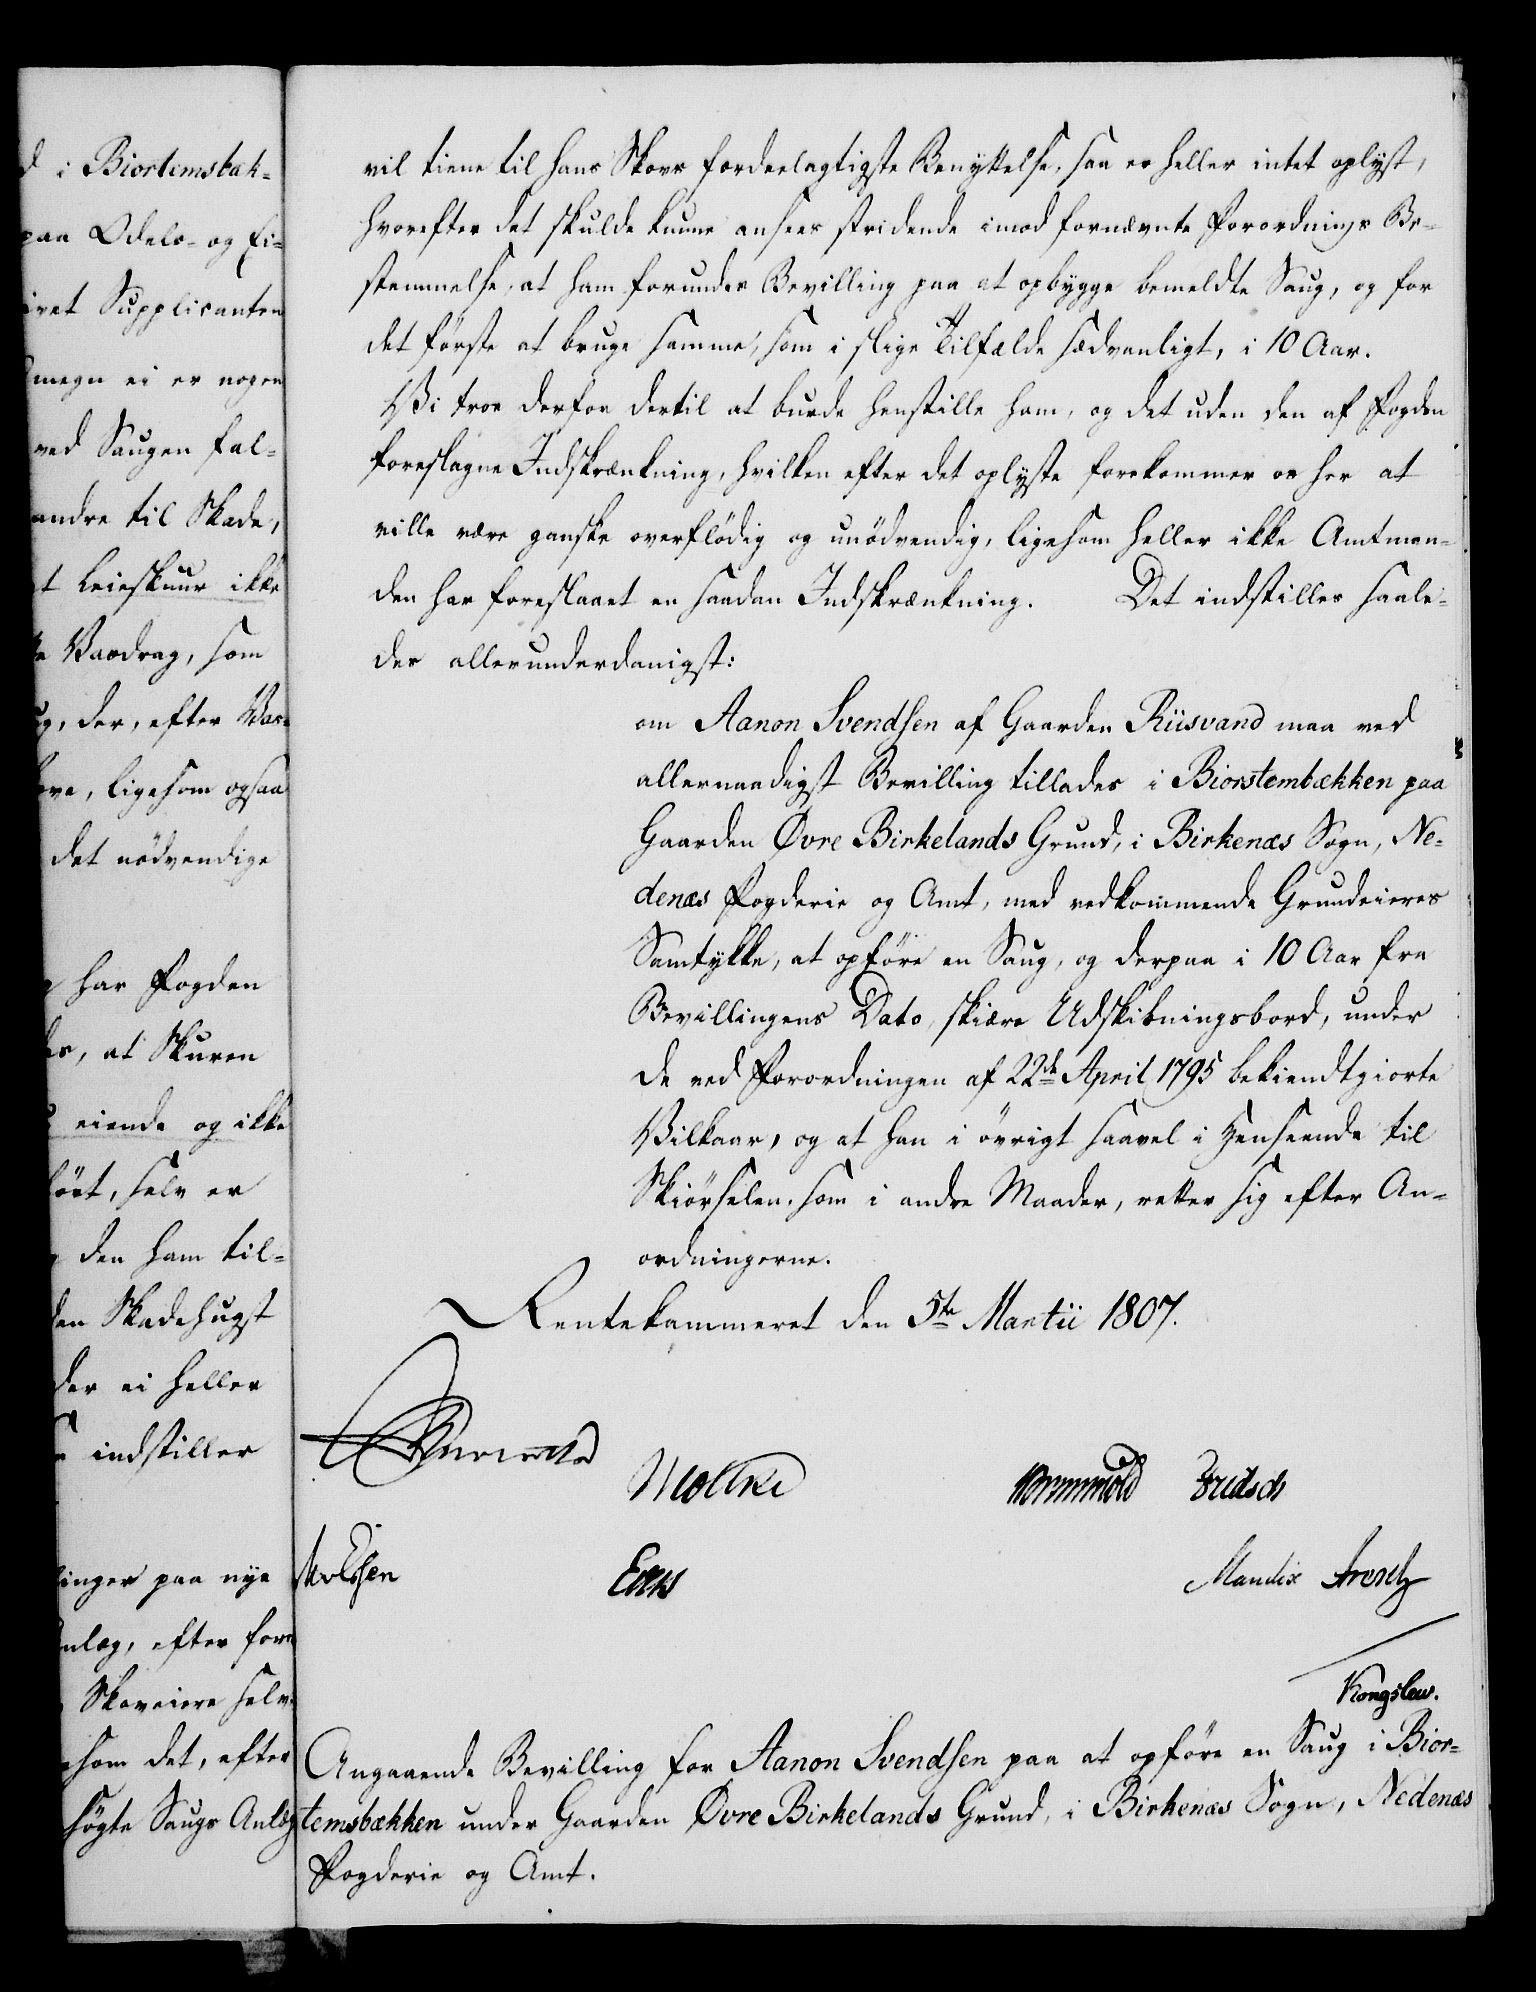 d i Biortemsbæk-
paa Odels- og Ei-
ivet Supplicanten
megn ei er nogen
ved Saugen fal-
andre til Skade,
t Leieskuur ikke
Vasdrag, som
g, der, efter Vas-
ove, ligesom ogsaa
det nödvendige
har Fogden
es, at Skuren
eiende og ikke
fört, selv er
den ham til-
den Skadehugst
der ei heller
indstiller
linger paa nye
nlæg, efter for-
Skoveiere selv
som det, efter
søgte Saugs Anlæg
vil tiene til hans Skovs fordeelagtigste Benyttelse, saa er heller intet oplyst,
hvorefter det skulde kunne ansees stridende imod fornævnte Forordnings Be-
stemmelse, at ham forundes Bevilling paa at opbygge bemeldte Saug, og for
det förste at bruge samme, som i slige Tilfælde sædvanligt, i 10 Aar.
Vi troe derfor dertil at burde henstille ham, og det uden den af Fogden
foreslagne Indskrænkning, hvilken efter det oplyste forekommer os her at
ville være ganske overflödig og unödvendig, ligesom heller ikke Amtman-
den har foreslaaet en saadan Indskrænkning. Det indstilles saale-
des allerunderdanigst:
om Aanon Svendsen af Gaarden Riisvand maa ved
allernaadigst Bevilling tillades i Biorstembækken paa
Gaarden Øvre Birkelands Grund, i Birkenæs Sogn, Ne-
denæs Fogderie og Amt, med vedkommende Grundeieres
Samtykke, at opföre en Saug, og derpaa i 10 Aar fra
Bevillingens Dato, skiære Udskibningsbord, under
de ved Forordningen af 22de April 1795 bekiendtgiorte
Vilkaar, og at han i övrigt saavel i Henseende til
Skiörselen, som i andre Maader, retter sig efter An-
ordningerne.
Rentekammeret den 5te Martii 1807.
Moltke Wormskiold Fridsch
Eeks Mandix
Kongslew.
Angaaende Bevilling for Aanon Svendsen paa at opföre en Saug i Bior-
temsbækken under Gaarden Øvre Birkelands Grund, i Birkenæs Sogn, Nedenæs
Fogderie og Amt.